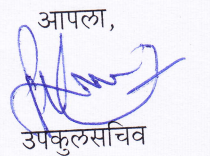 आपला,
उपकुलसचिव